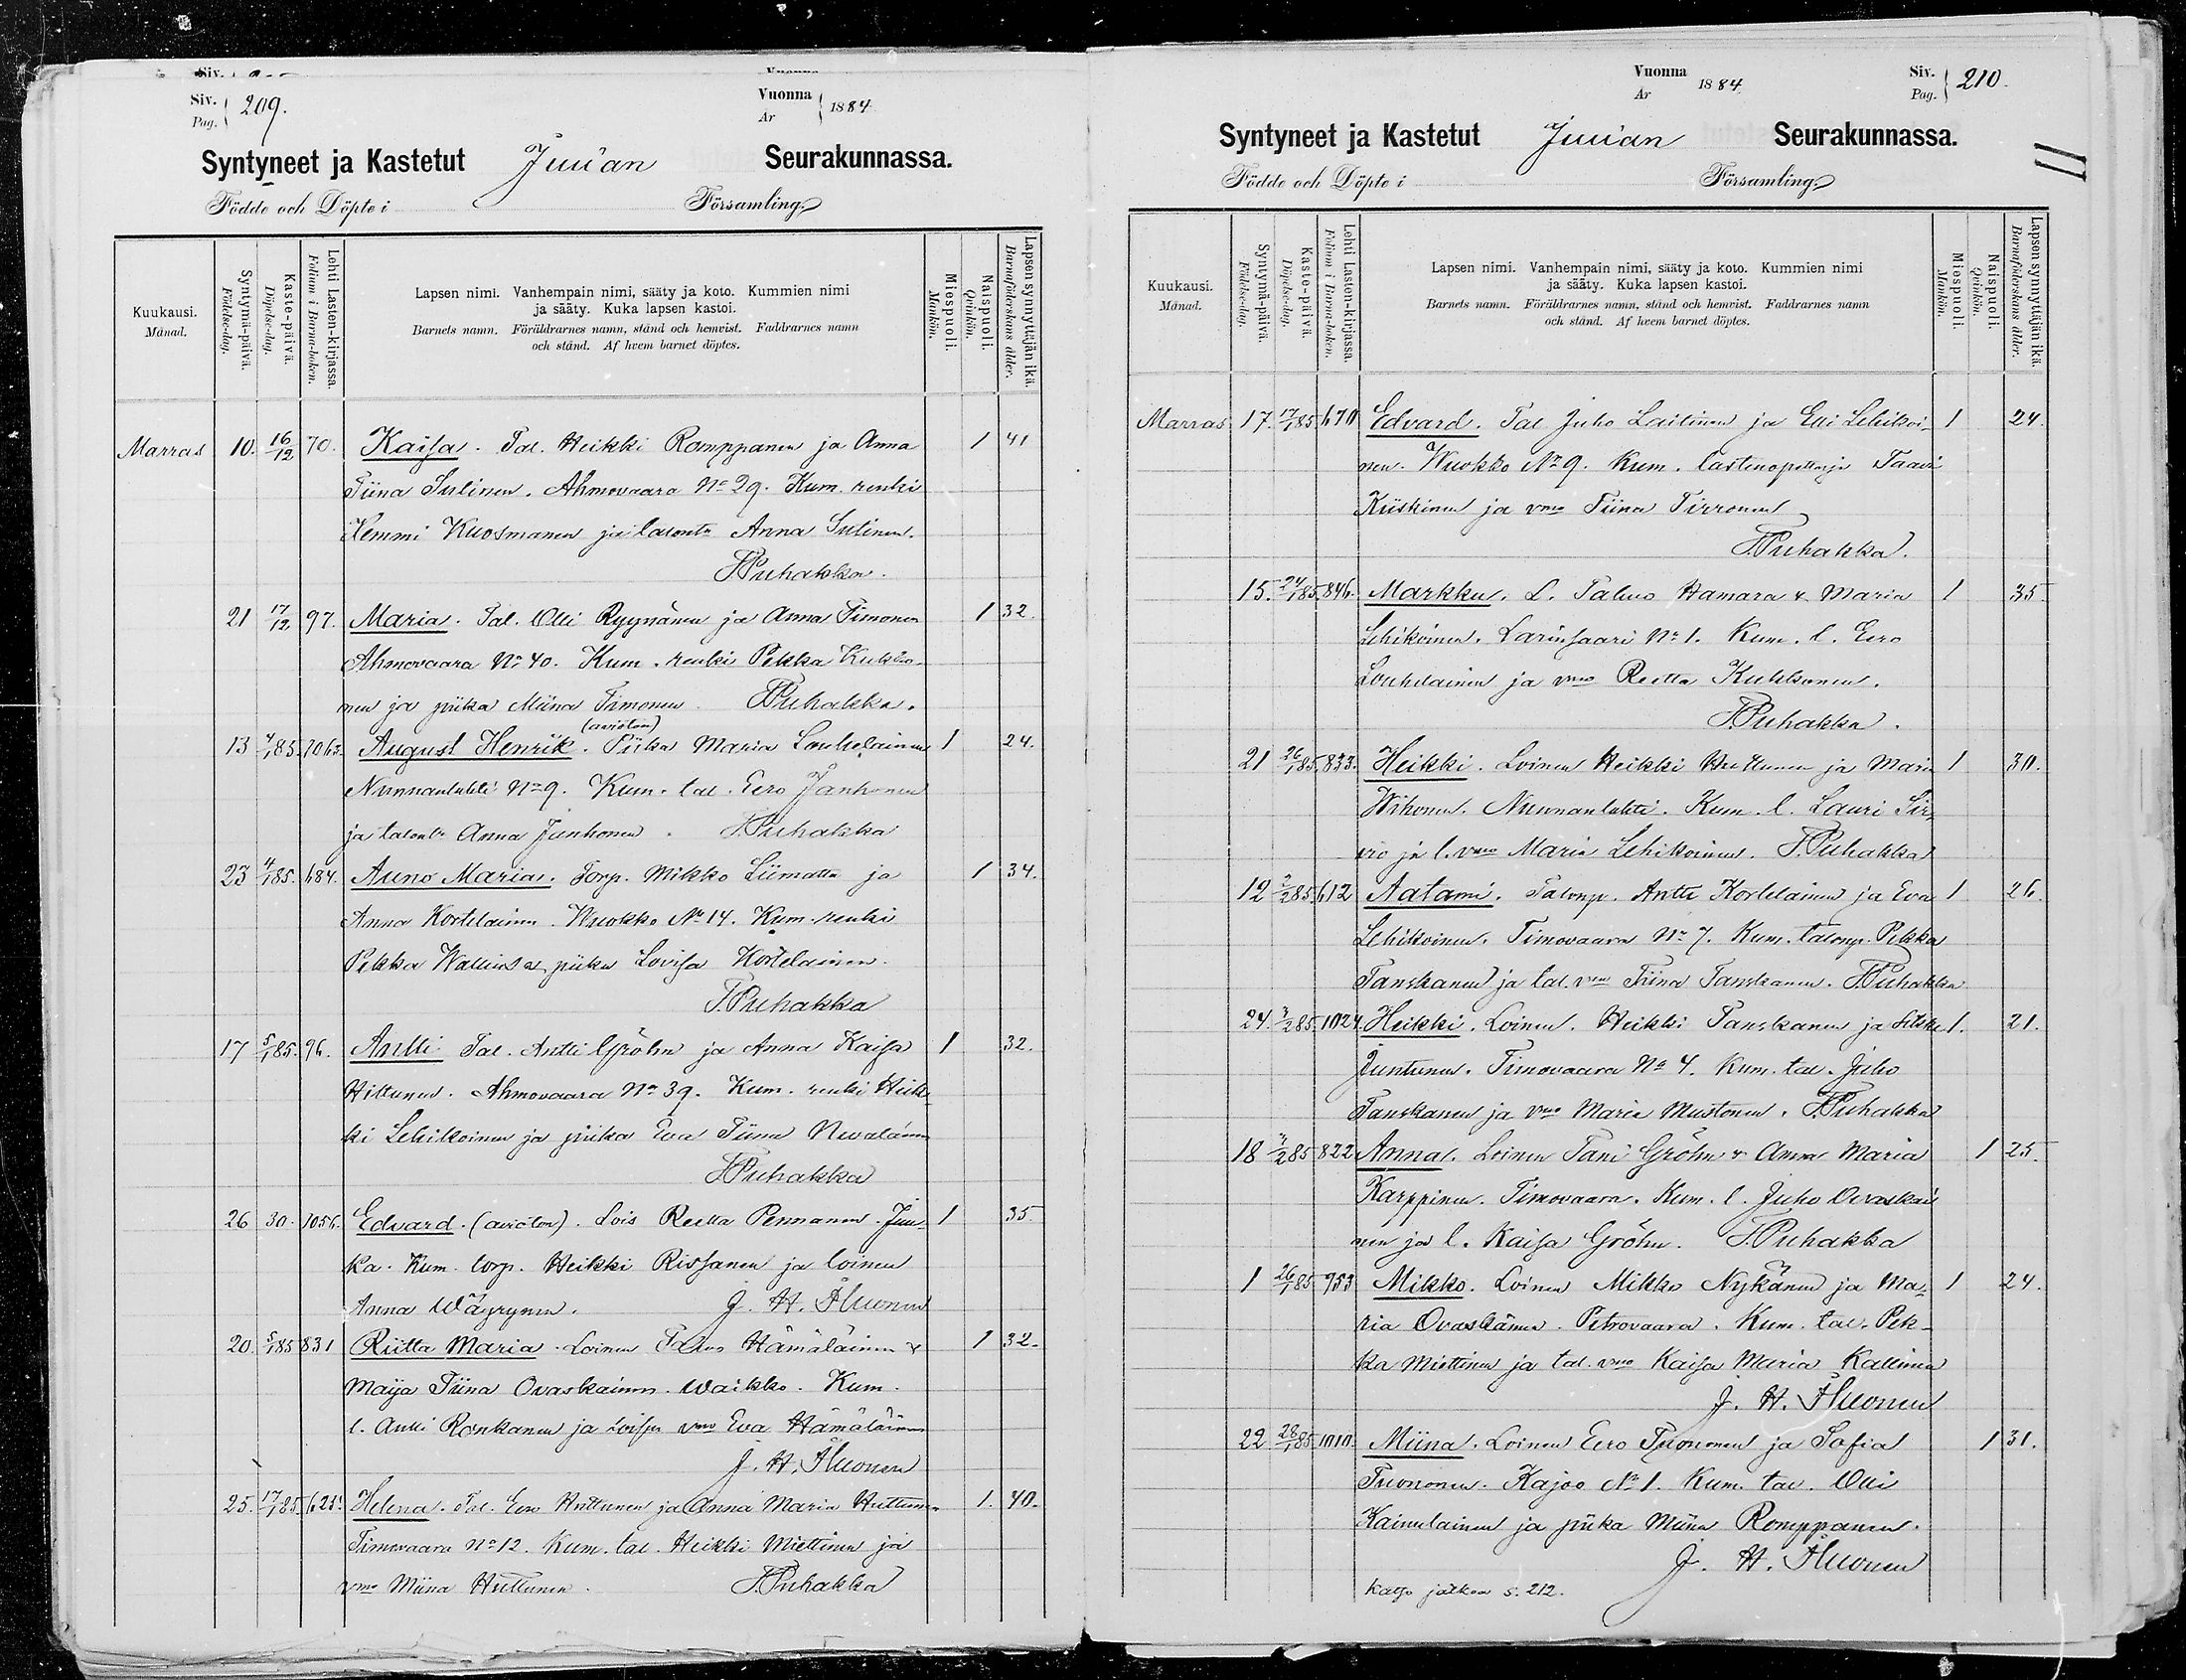 Siv.
Pag. 209.
Vuonna
År 1884
Syntyneet ja Kastetut Juuan Seurakunnassa.
Födde och Döpte i Församling.
Kuukausi.
Månad.
Syntymä-päivä.
Födelse-dag.
Kaste-päivä.
Döpelse-dag.
Lehti Lasten-kirjassa.
Folium i Barna-boken.
Lapsen nimi. Vanhempain nimi, sääty ja koto. Kummien nimi
ja sääty. Kuka lapsen kastoi.
Barnets namn. Föräldrarnes namn, stånd och hemvist. Faddrarnes namn
och stånd. Af hvem barnet döptes.
Miespuoli.
Mankön.
Naispuoli.
Qvinkön.
Lapsen synnyttäjän ikä.
Barnaföderskans ålder.
Marras 10. 16/12 70. Kaisa. Tal. Heikki Romppanen ja Anna 1 41
Tiina Sutinen. Ahmovaara No 29. Kum. renki
Hemmi Kuosmanen ja talont. Anna Sutinen.
Puhakka.
21 17/12 97. Maria. Tal. Olli Ryynänen ja Anna Timonen 1 32.
Ahmovaara No 40. Kum. renki Pekka Kukko-
nen ja piika Miina Timonen. Puhakka.
(aviöton)
13 4/1 85. 1063. August Henrik. Piika Maria Louhelainen 1 24.
Nunnanlahti No 9. Kum. tal. Eero Janhonen
ja talontr Anna Junhonen. Puhakka
23 4/1 85. 684. Auno Maria. Torp. Mikko Liimatta ja 1 34.
Anna Kortelainen. Wuokko No 14. Kum. renki
Pekka Wallius & piika Lovisa Kortelainen.
Puhakka
17 5/1 85. 96. Antti Tal. Antti Gröhn ja Anna Kaisa 1 32.
Hiltunen. Ahmovaara No 39. Kum. renki Heik-
ki Lehikoinen ja piika Eva Tiina Nevalainen
Puhakka
26 30. 1056. Edvard. (aviöton). Lois Reetta Pennanen. Juu- 1 35.
ka. Kum. torp. Heikki Rissanen ja loinen
Anna Wäyrynen. J. H. Huonen
20. 5/1 85 831 Riitta Maria. Loinen Paavo Hämäläinen & 1 32.
Maija Tiina Ovaskainen. Waikko. Kum.
l. Antti Ronkanen ja loisen vmo Eva Hämäläinen
J. H. Huonen
25. 17/1 85. 625. Helena. Tal. Eero Huttunen ja Anna Maria Huttunen 1. 40.
Timovaara No 12. Kum. tal. Heikki Miettinen ja
vmo Miina Huttunen. Puhakka
Vuonna
År 1884
Siv.
Pag. 210.
Syntyneet ja Kastetut Juuan Seurakunnassa.
Födde och Döpte i Församling.
Kuukausi.
Månad.
Syntymä-päivä.
Födelse-dag.
Kaste-päivä.
Döpelse-dag.
Lehti Lasten-kirjassa.
Folium i Barna-boken.
Lapsen nimi. Vanhempain nimi, sääty ja koto. Kummien nimi
ja sääty. Kuka lapsen kastoi.
Barnets namn. Föräldrarnes namn, stånd och hemvist. Faddrarnes namn
och stånd. Af hvem barnet döptes.
Miespuoli.
Mankön.
Naispuoli.
Qvinkön.
Lapsen synnyttäjän ikä.
Barnaföderskans ålder.
Marras 17. 17/1 85 670 Edvard. Tal Juho Laitinen ja Elli Lehikoi- 1 24
nen. Wuokko No 9. Kum. lastenopettaja Taavi
Kiiskinen ja vmo Tiina Tirronen
Puhakka.
15. 24/1 85. 846. Markku. L. Paavo Hamara & Maria 1 35.
Lehikoinen. Larinsaari No 1. Kum. l. Eero
Louhelainen ja vmo Reetta Kukkonen.
Puhakka.
21 26/1 85. 833. Heikki. Loinen Heikki Huttunen ja Maria 1 30.
Wihonen. Nunnanlahti. Kum. l. Lauri Sir-
vio ja l. vmo Maria Lehikoinen. Puhakka
12 2/2 85. 612 Aatami. Talonp. Antti Kortelainen ja Eva 1 26.
Lehikoinen. Timovaara No 7. Kum. talonp. Pekka
Tanskanen ja tal. vmo Tiina Tanskanen. Puhakka
24. 3/2 85. 1024 Heikki. Loinen. Heikki Tanskanen ja 1. 21.
Juntunen. Timovaara No 4. Kum. tal. Juho
Tanskanen ja vmo Maria Mustonen. Puhakka
18 4/2 85 822 Anna. Loinen Tani Gröhn & Anna Maria 1 25.
Karppinen. Timovaara. Kum. l. Juho Ovaskai-
nen ja l. Kaisa Gröhn. Puhakka
1 26/1 85 953 Mikko. Loinen Mikko Nykänen ja Ma- 1 24.
ria Ovaskainen. Petrovaara. Kum. tal. Pek-
ka Miettinen ja tal. vmo Kaisa Maria Kallinen
J. H. Huonen
22 28/1 85 1010. Miina. Loinen Eero Tuononen ja Sofia 1 31.
Tuononen. Kajoo No 1. Kum. tal. Olli
Kainulainen ja piika Miina Romppanen.
J. H. Huonen
katso jatkoa s. 212.